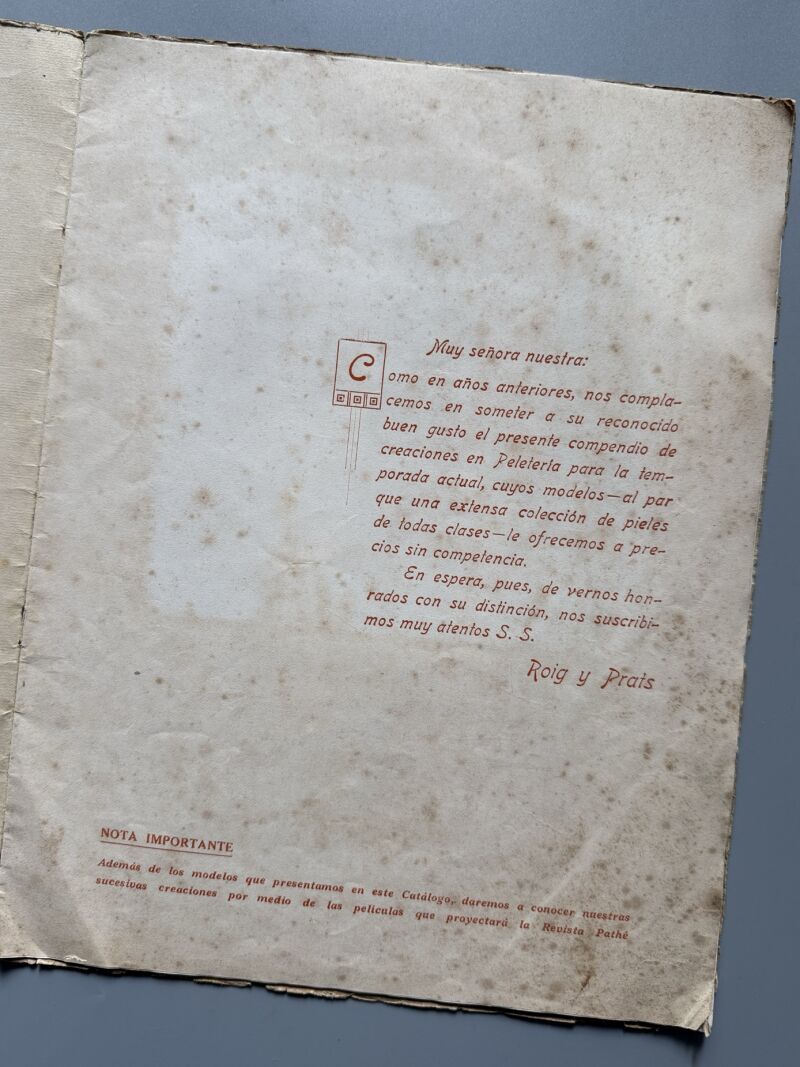 Muy señora nuestra:
Como en años anteriores, nos compla-
cemos en someter a su reconocido
buen gusto el presente compendio de
creaciones en Peletería para la tem-
porada actual, cuyos modelos—al par
que una extensa colección de pieles
de todas clases—le ofrecemos a pre-
cios sin competencia.
En espera, pues, de vernos hon-
rados con su distinción, nos suscribi-
mos muy atentos S. S.
Roig y Prats
NOTA IMPORTANTE
Además de los modelos que presentamos en este Catálogo, daremos a conocer nuestras
sucesivas creaciones por medio de las películas que proyectará la Revista Pathé